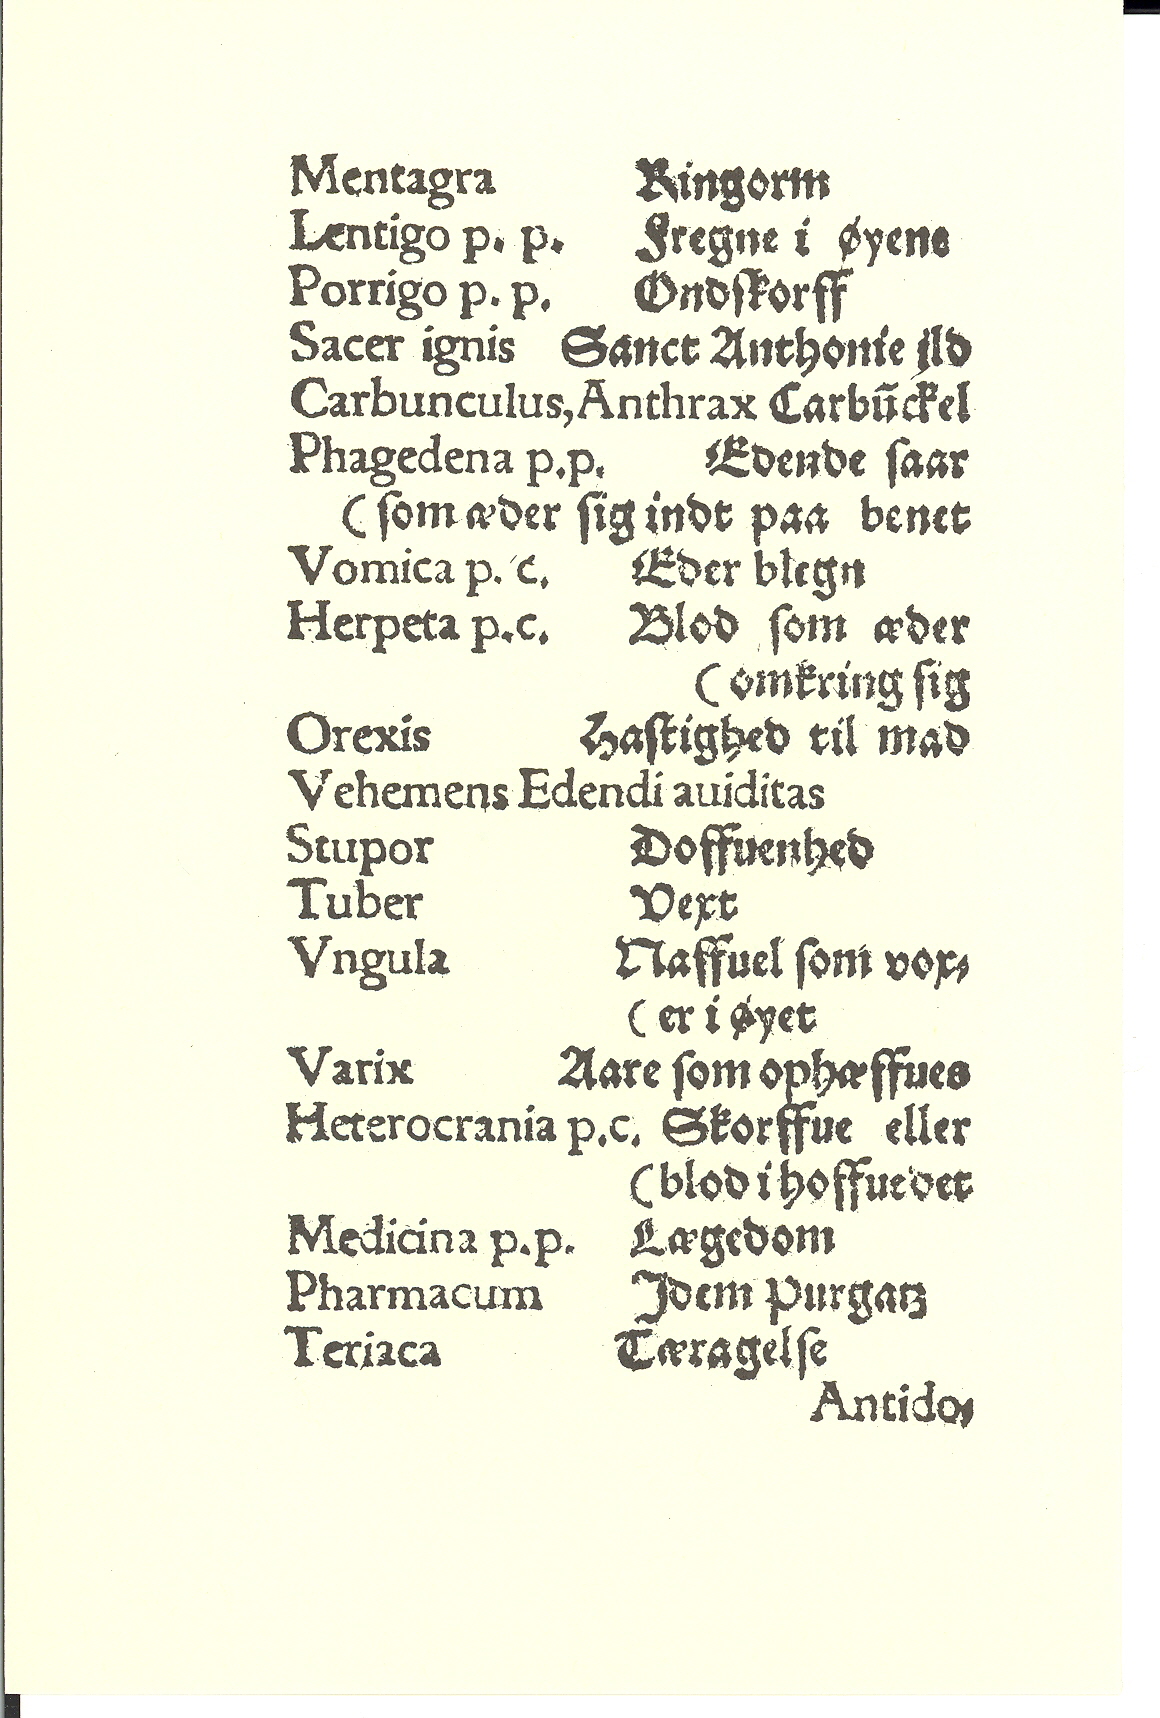 Mentagra Ringorm
Lentigo p. p. Fregne i øyene
Porrigo p. p. Ondſkorff
Sacer ignis Sanct Anthonie jld
Carbunculus, Anthrax Carbūckel
Phagedena p.p. Edende ſaar
( ſom æder ſig indt paa benet
Vomica p. c. Eder blegn
Herpeta p.c. Blod ſom æder
( omkring ſig
Orexis Haſtighed til mad
Vehemens Edendi auiditas
Stupor Doffuenhed
Tuber Vext
Vngula Naffuel ſom vox⸗
( er i øyet
Varix Aare ſom ophæffues
Heterocrania p.c. Skorffue eller
( blod i hoffuedet
Medicina p.p. Lægedom
Pharmacum Idem Purgatz
Teriaca Tæragelſe
Antido⸗